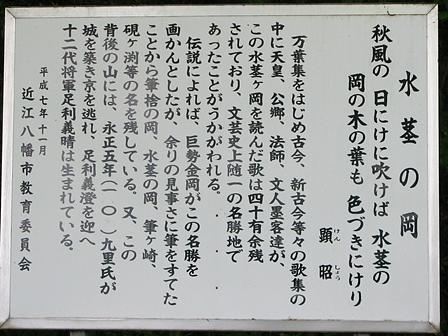 水茎の岡
秋風の 日にけに吹けば 水茎の
岡の木の葉も 色づきにけり
顕昭
けん しょう
万葉集をはじめ古今、新古今等々の歌集の
中に天皇、公郷、法師、文人墨客達が、
この水茎ヶ岡を読んだ歌は四十有余残
されており、文芸史上随一の名勝地で
あったことがうかがわれる。
伝説によれば、巨勢金岡がこの名勝を
画かんとしたが、余りの見事さに筆をすてた
ことから筆捨の岡、水茎の岡、筆ヶ崎、
硯ヶ渕等の名を残している。又、この
背後の山には、永正五年(一〇)九里氏が
城を築き京を逃れ、足利義澄を迎へ
十二代将軍足利義晴は生まれている。
平成七年十一月
近江八幡市教育委員会